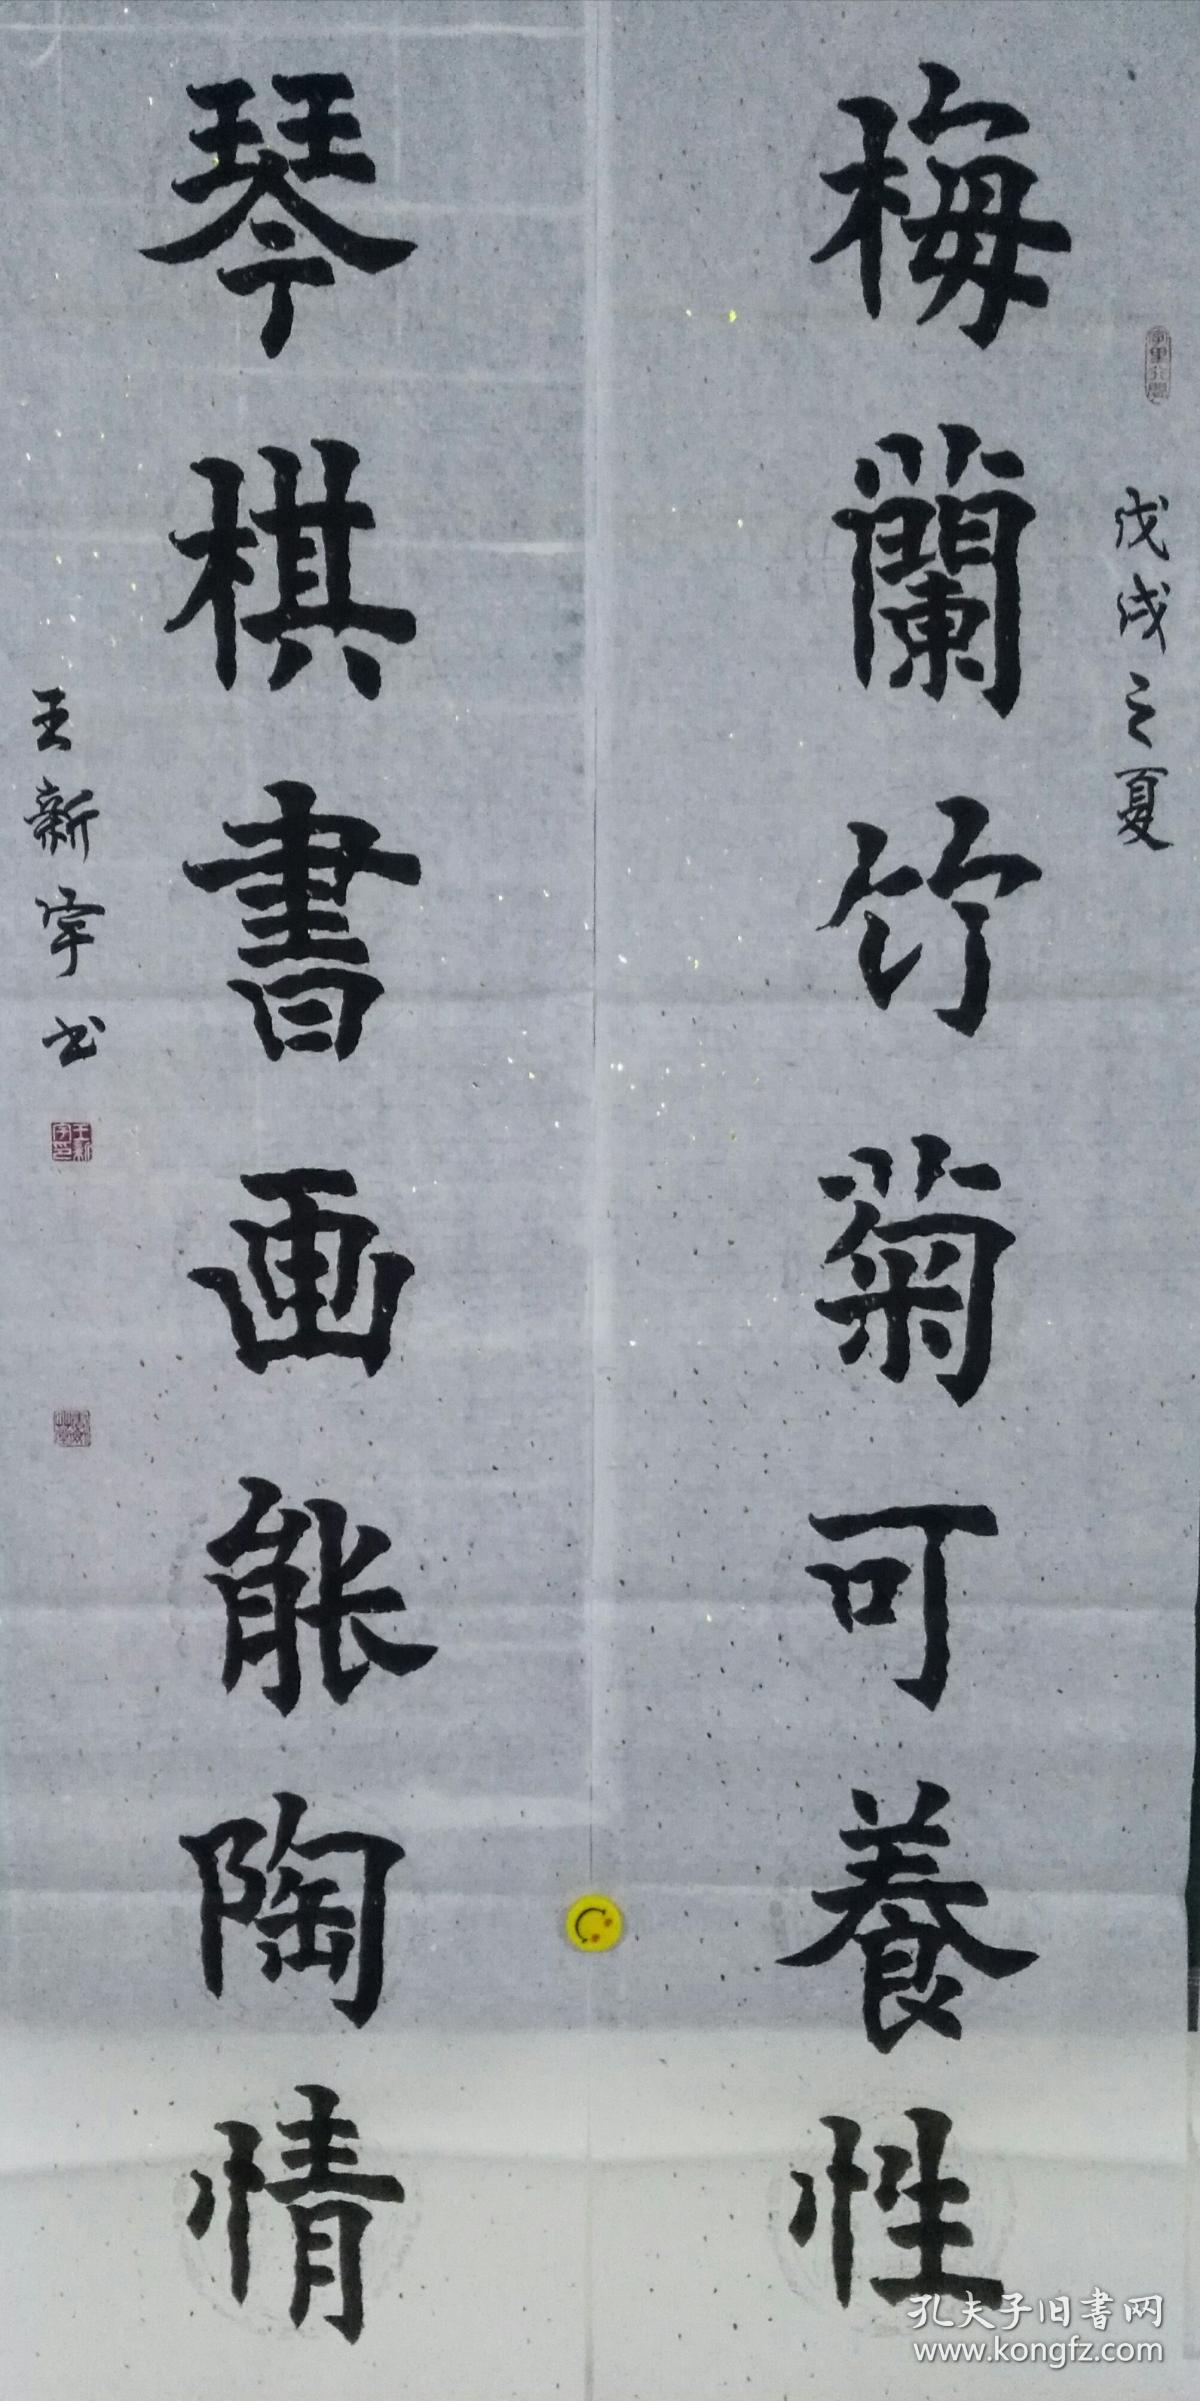 戊戌之夏
梅蘭竹菊可養性
琴棋書画能陶情
王新宇书
王新宇印
孔夫子旧书网
www.kongfz.com